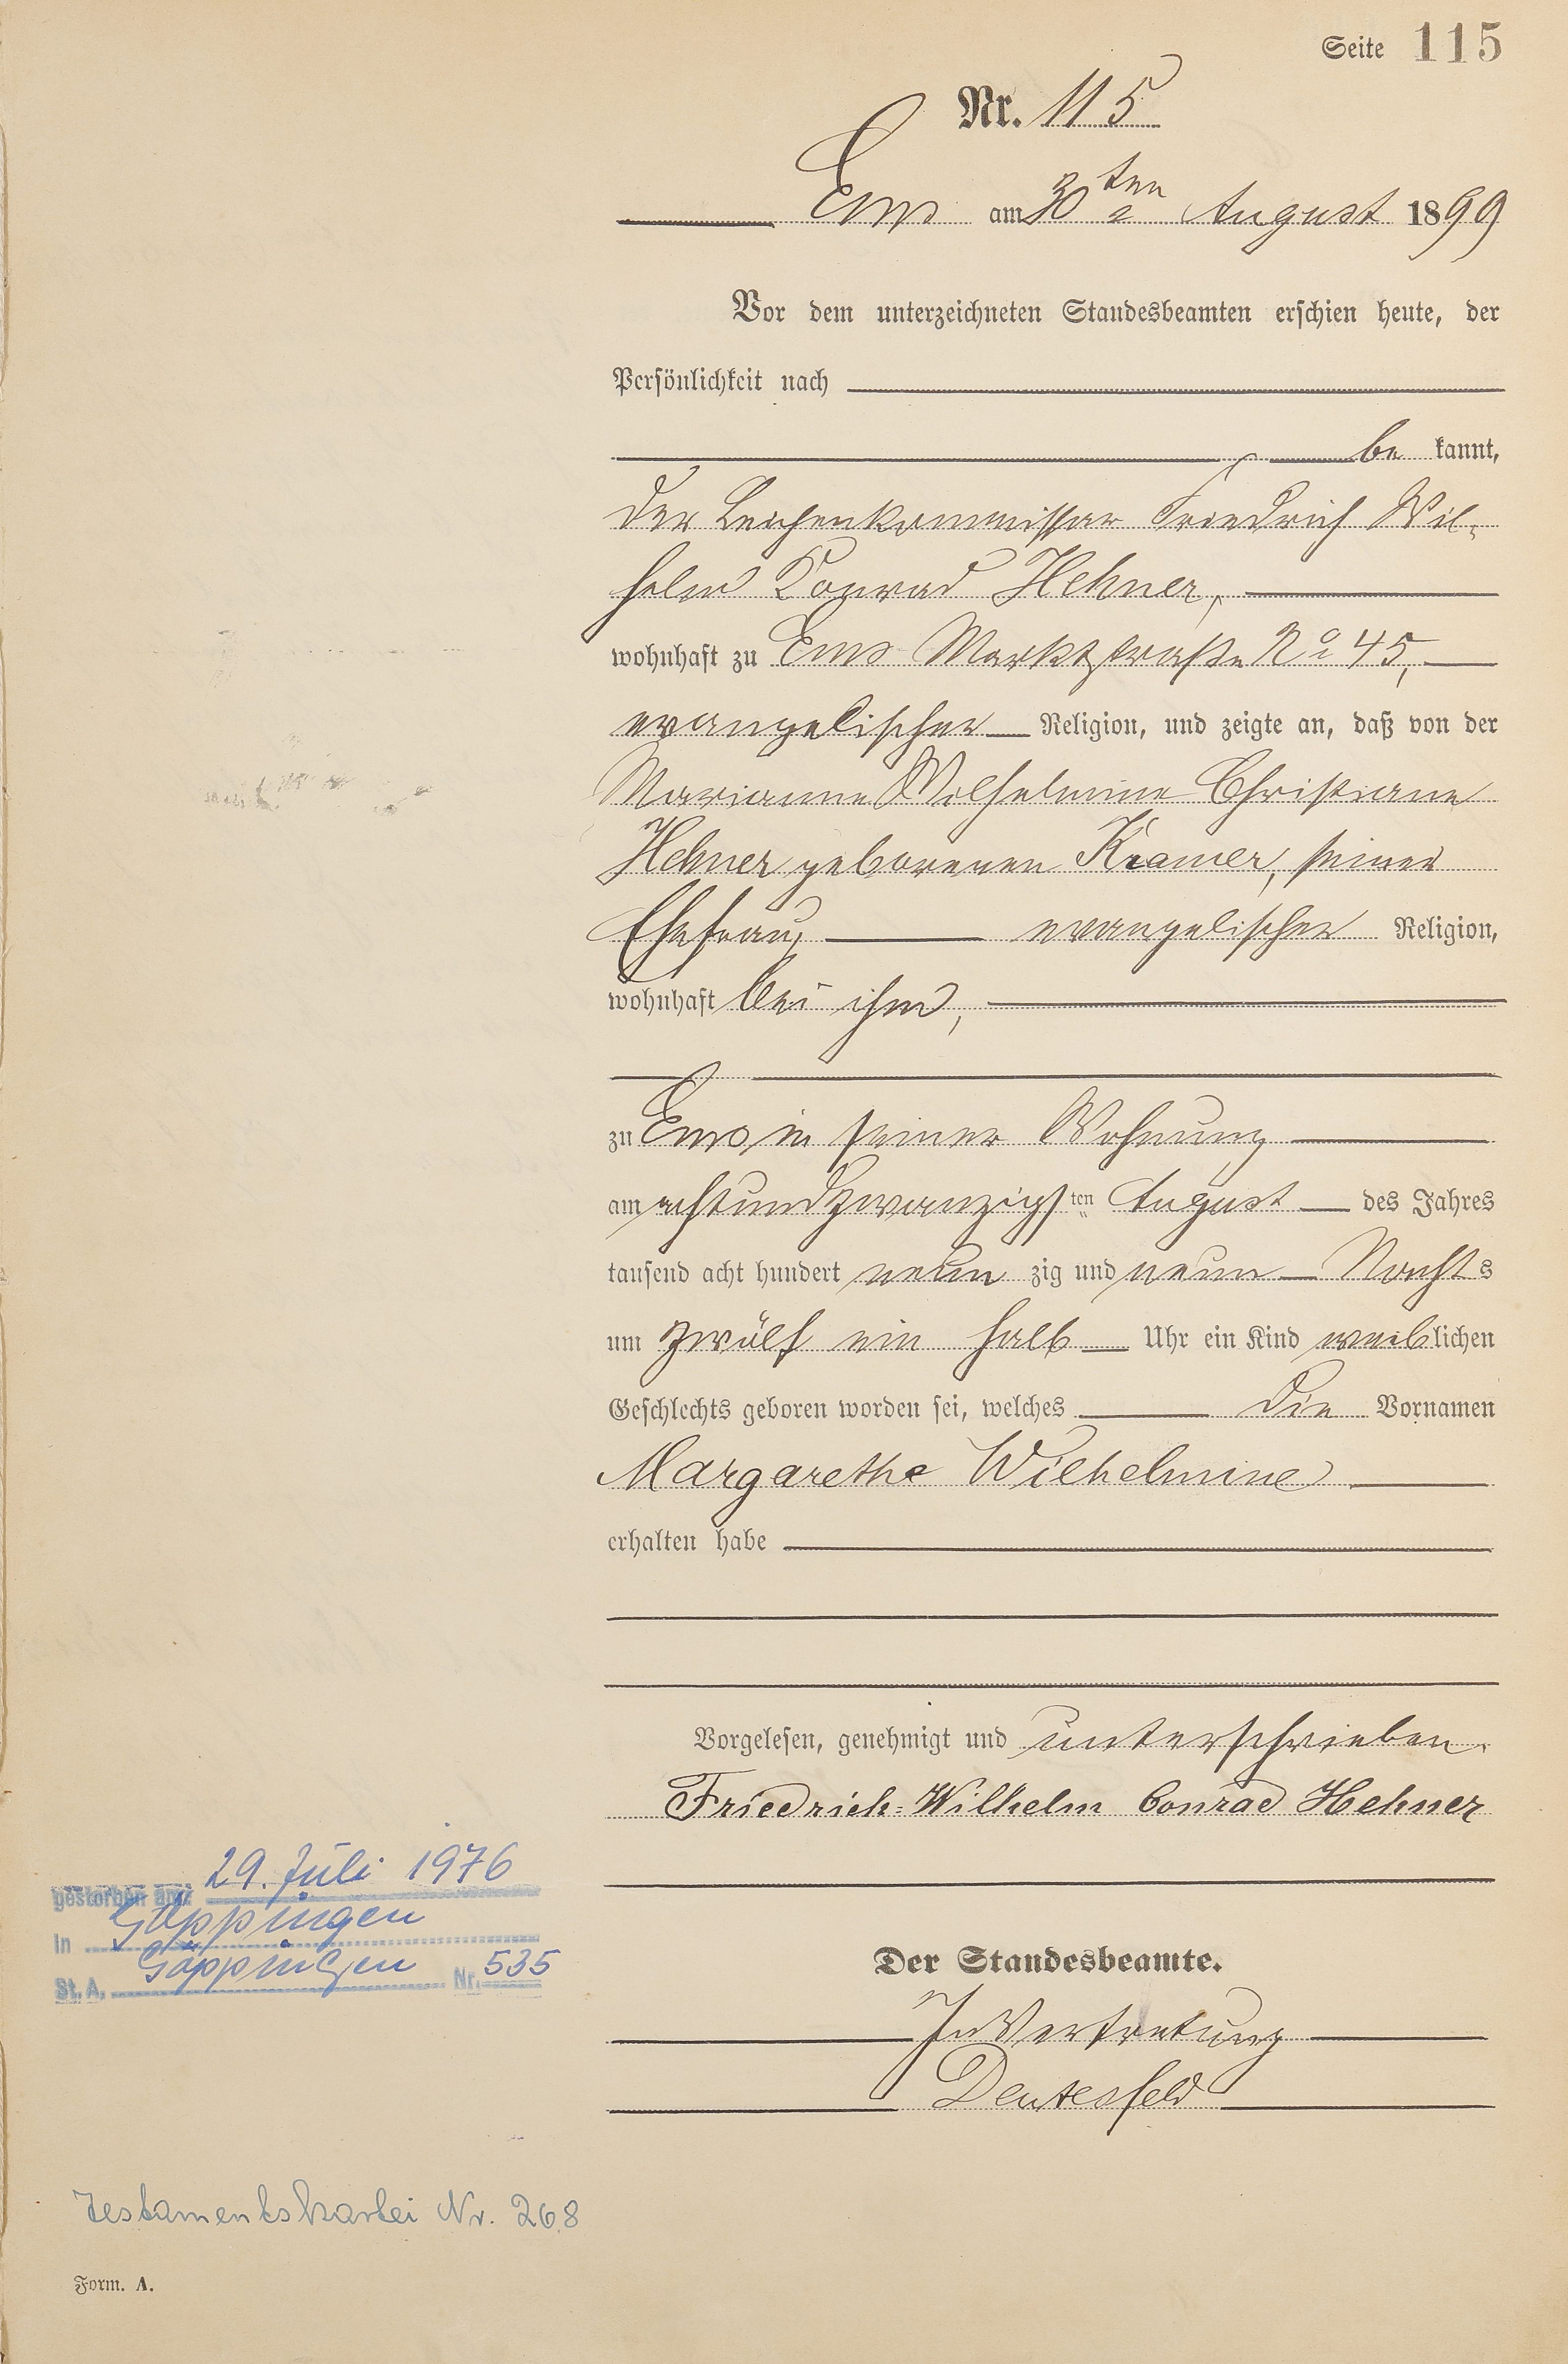 Seite 115
Nr. 115
Ems am 30ten August 1899
Vor dem unterzeichneten Standesbeamten erschien heute, der
Persönlichkeit nach
be kannt,
der Leichenkommissar Friedrich Wil-
helm Konrad Hehner,
wohnhaft zu Ems Marktstraße No 45,
evangelischer Religion, und zeigte an, daß von der
Marianne Wilhelmine Christiane
Hehner geborenen Kramer, seiner
Ehefrau, evangelischer Religion,
wohnhaft bei ihm,
zu Ems in seiner Wohnung
am achtundzwanzigsten August des Jahres
tausend acht hundert neun zig und neun Nachts
um zwölf ein halb Uhr ein Kind weiblichen
Geschlechts geboren worden sei, welches die Vornamen
Margarethe Wilhelmine
erhalten habe
Vorgelesen, genehmigt und unterschrieben.
Friedrich-Wilhelm Conrad Hehner
gestorben am: 29. Juli 1976
In Göppingen
St. A. Göppingen Nr. 535
Der Standesbeamte.
In Vertretung
Deutesfeld
Testamentskartei Nr. 268
Form. A.